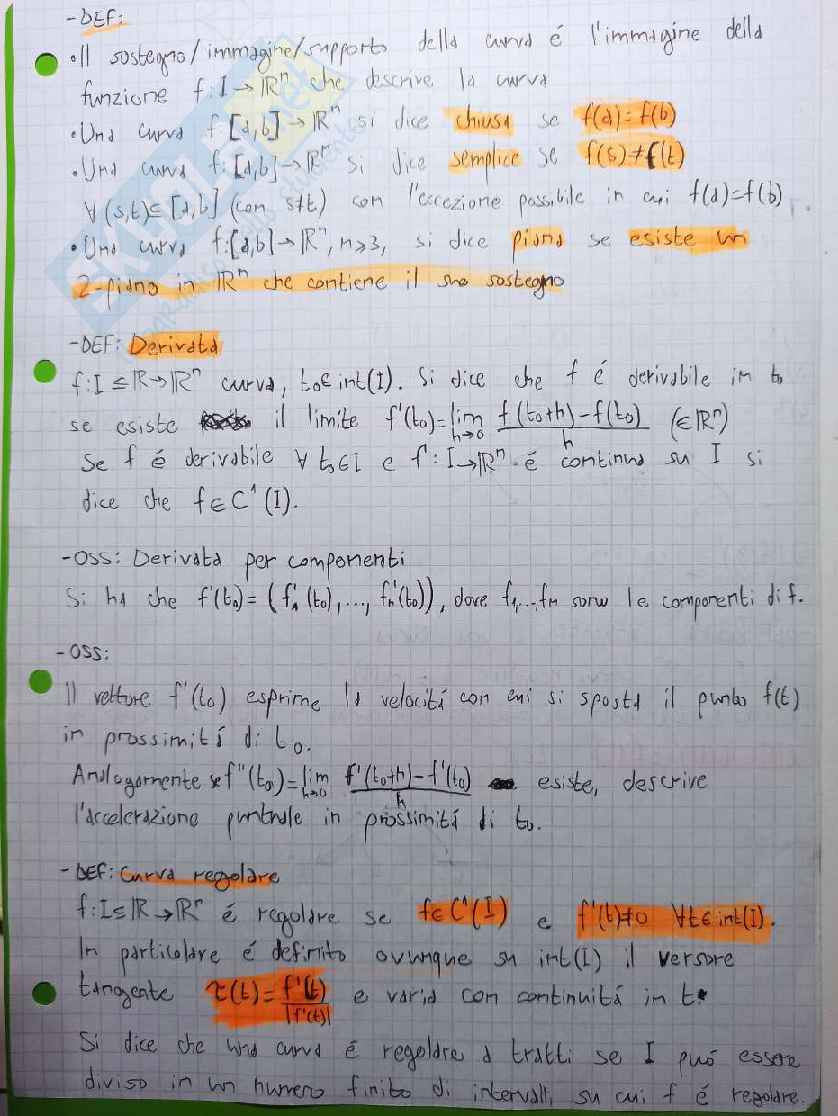 -DEF:
•Il sostegno/immagine/supporto della curva é l'immagine della
funzione f: I → ℝⁿ che descrive la curva
•Una curva f [a,b] → ℝⁿ si dice chiusa se f(a)=f(b)
•Una curva f: [a,b] → ℝⁿ si dice semplice se f(s)≠f(t)
∀(s,t)⊆[a,b] (con s≠t) con l'eccezione possibile in cui f(a)=f(b).
•Una curva f:[a,b]→ℝⁿ, n≥3, si dice piana se esiste un
2-piano in ℝⁿ che contiene il suo sostegno
-DEF: Derivata
f: I ⊆ ℝ → ℝⁿ curva, t₀∈int(I). Si dice che f é derivabile in t₀
se esiste il limite f'(t₀)=lim h→0 f(t₀+h)-f(t₀)/h (∈ℝⁿ)
Se f é derivabile ∀ t₀∈I e f': I→ℝⁿ é continua su I si
dice che f∈C¹(I).
-OSS: Derivata per componenti
Si ha che f'(t₀)=(f₁'(t₀),...,fₙ'(t₀)), dove f₁,...fₙ sono le componenti di f.
-OSS:
Il vettore f'(t₀) esprime la velocitá con cui si sposta il punto f(t)
in prossimitá di t₀.
Analogamente se f''(t₀)=lim h→0 f'(t₀+h)-f'(t₀)/h esiste, descrive
l'accelerazione puntuale in prossimitá di t₀.
-DEF: Curva regolare
f: I⊆ℝ→ℝⁿ é regolare se f∈C¹(I) e f'(t)≠0 ∀t∈int(I).
In particolare é definito ovunque su int(I) il versore
tangente τ(t)=f'(t)/|f'(t)| e varia con continuitá in t.
Si dice che una curva é regolare a tratti se I puó essere
diviso in un numero finito di intervalli, su cui f é regolare.